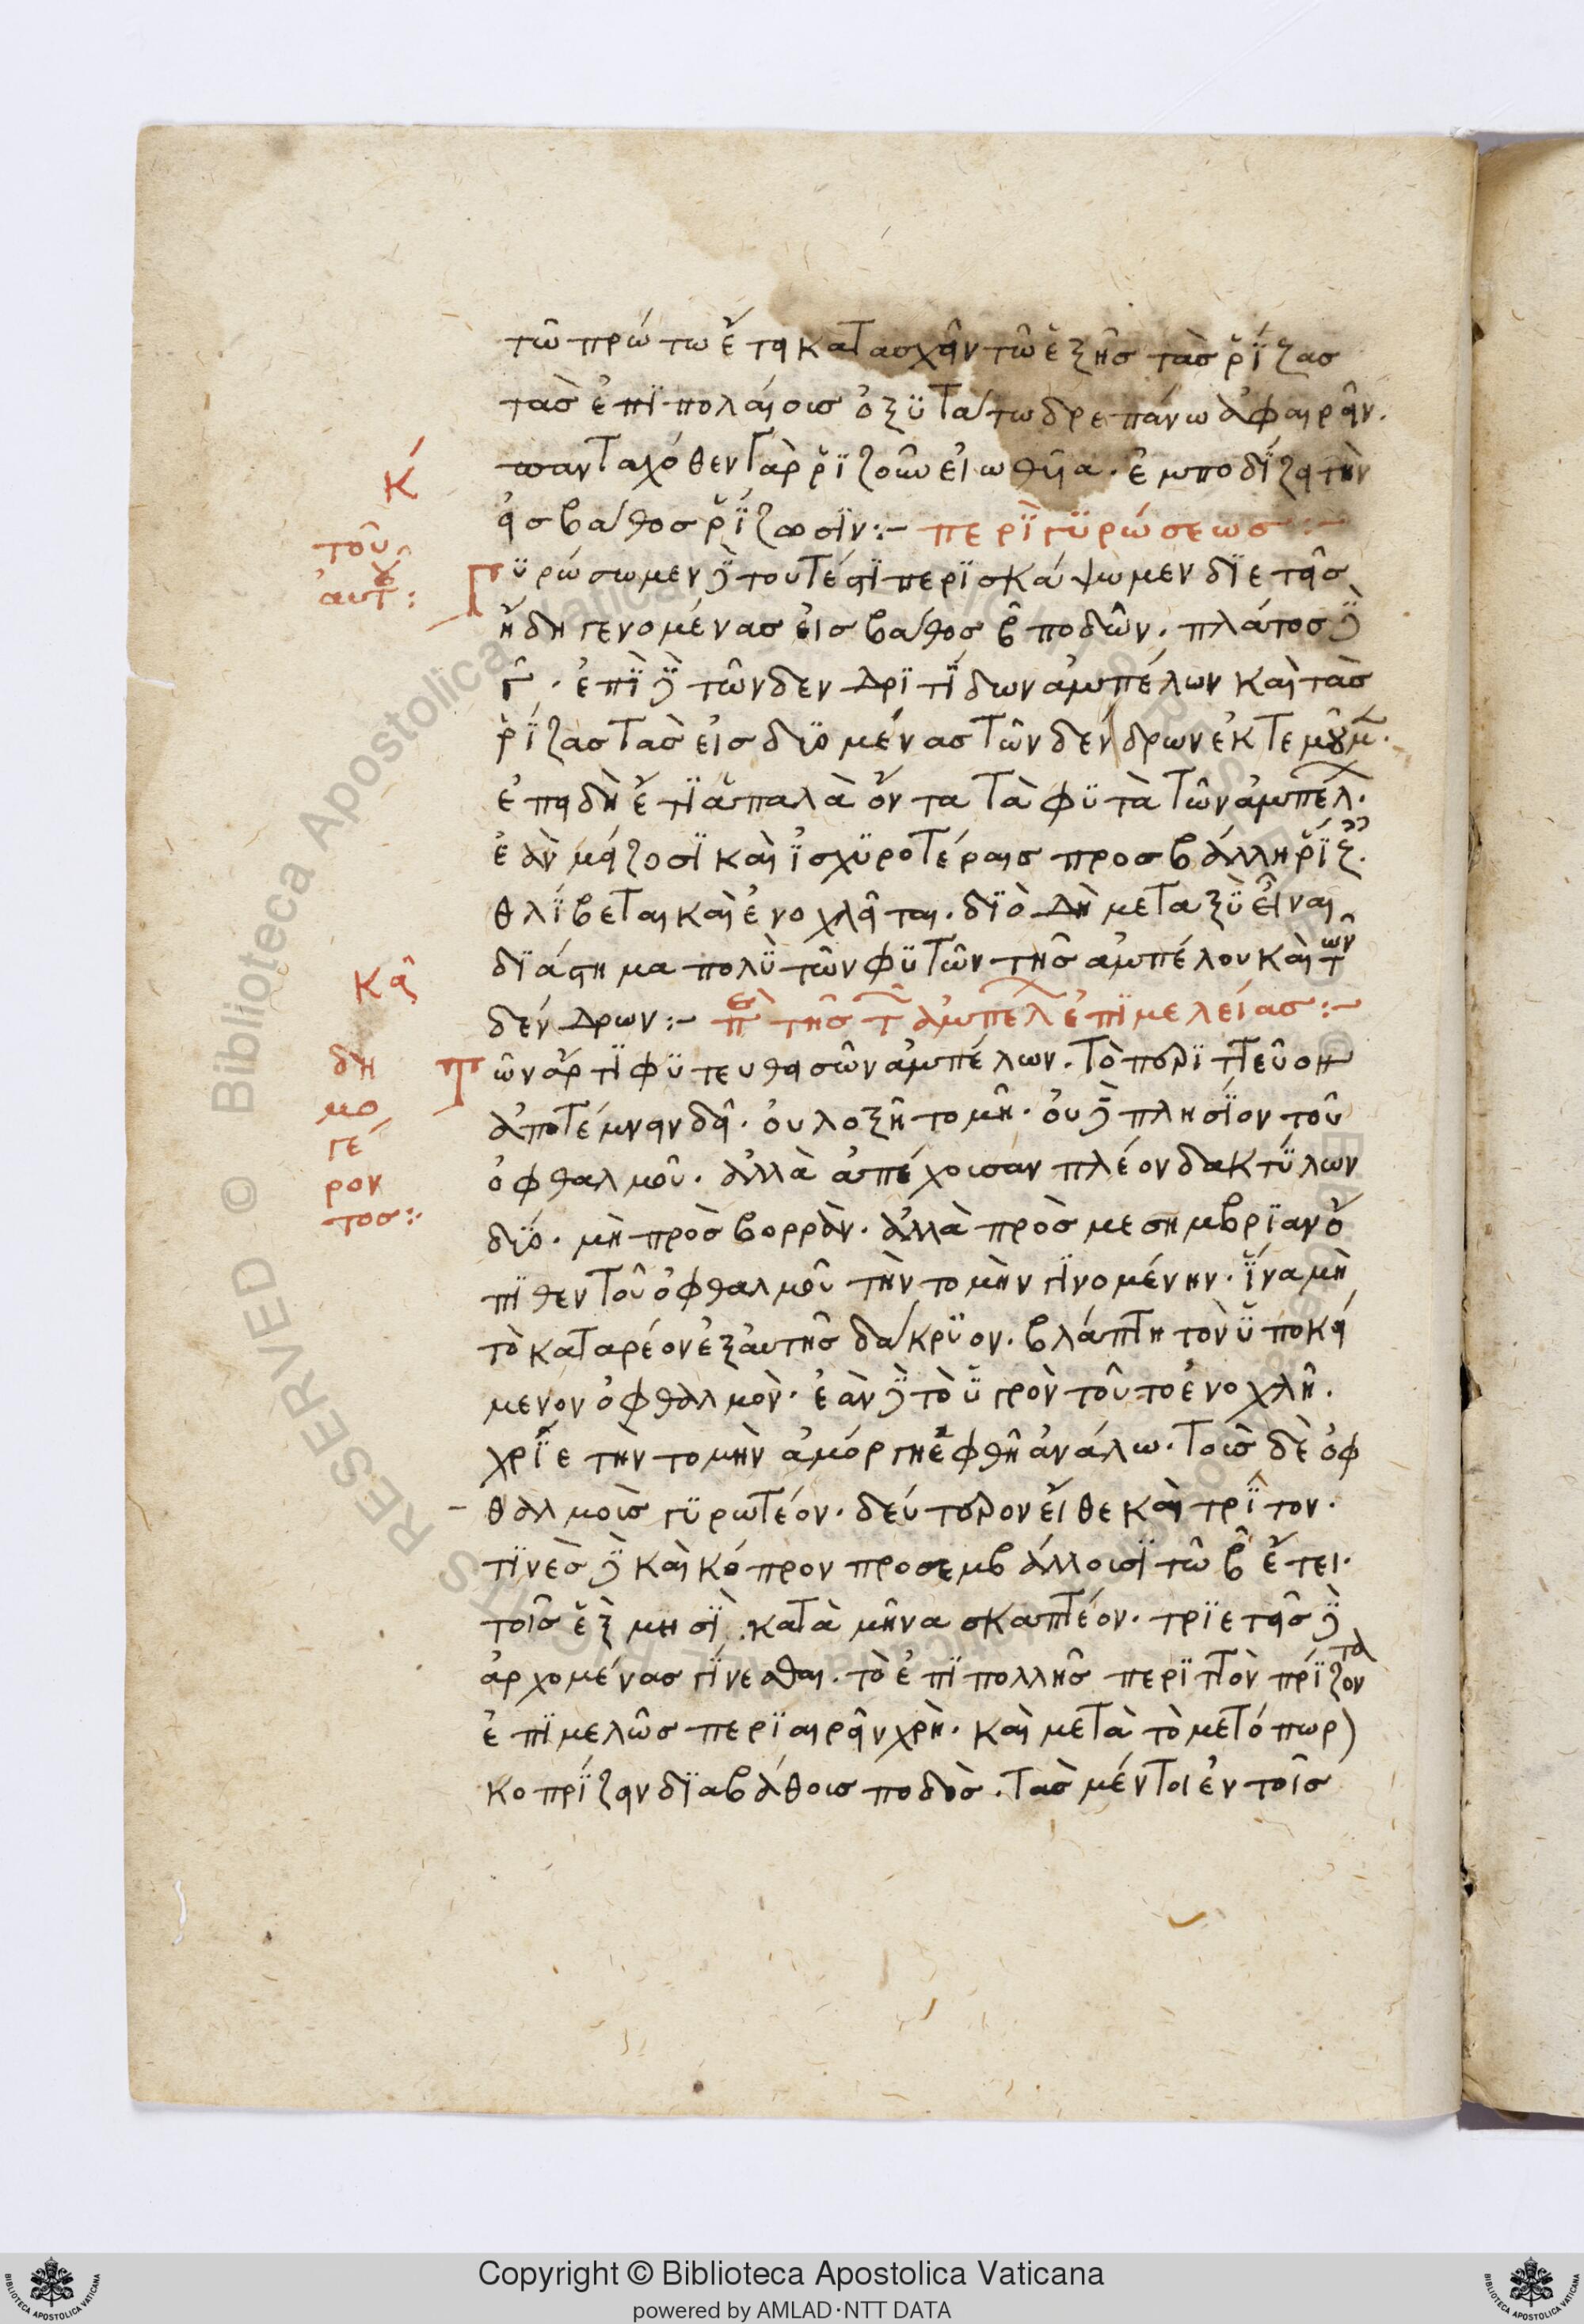 τῶ πρώτω ἔτει κατασχεῖν τῶ ἑξῆς τὰς ῥίζας
τὰς ἐπιπολαίοις ὀξυτάτω δρεπάνω ἀφαιρεῖν.
πανταχόθεν γὰρ ῥιζοῦν εἰωθῦια. ἐμποδίζει τὴν
εἰς βάθος ῥίζωσιν:– περὶ γυρώσεως :–
Κ
τοῦ
αὐτοῦ:
Γυρώσωμεν δὲ τουτέστι περισκάψωμεν διετεῖς
ἤδη γενομένας εἰς βάθος β ποδῶν. πλάτος δὲ
γ. ἐπὶ δὲ τῶν δενδριτίδων ἀμπέλων καὶ τὰς
ῥίζας τὰς εἰσδυομένας τῶν δένδρων ἐκτεμοῦμ.
ἐπειδὴ ἔτι ἁπαλὰ ὄντα τὰ φυτὰ τῶν ἀμπέλ.
ἐὰν μείζοσι καὶ ἰσχυροτέραις προσβάλλη ῥίζ.
θλίβεται καὶ ἐνοχλεῖται. διὸ δὴ μεταξὺ εἶναι
διάστημα πολὺ τῶν φυτῶν τῆς ἀμπέλου καὶ τῶν
δένδρων:– περὶ τῆς τ ἀμπελ ἐπιμελείας:–
Κα
δη
μο
γέ
ρον
τος:
Τῶν ἄρτι φυτευθεισῶν ἀμπέλων. τὸ περιττεῦον
ἀποτέμνειν δεῖ. οὐ λοξῆ τομῆ. οὐ δὲ πλησίον τοῦ
ὀφθαλμοῦ. ἀλλὰ ἀπέχουσαν πλέον δακτύλων
δύο. μὴ πρὸς βορρὰν. ἀλλὰ πρὸς μεσημβρίαν ὄ
πιθεν τοῦ ὀφθαλμοῦ τὴν τομὴν γινομένην. ἵνα μὴ
τὸ καταρέον ἐξ αὐτῆς δάκρυον. βλάπτη τὸν ὑποκεί
μενον ὀφθαλμὸν. ἐὰν δὲ τὸ ὑγρὸν τοῦτο ἐνοχλῆ.
χρῖε τὴν τομὴν ἀμόργη ἑφθῆ ἀνάλω. τοῖς δὲ ὀφ
θαλμοῖς γυρωτέον. δεύτερον εἶθε καὶ τρίτον.
τινὲς δὲ καὶ κόπρον προσεμβάλλουσι τῶ β ἔτει.
τοῖς ἓξ μησὶ κατὰ μῆνα σκαπτέον. τριετεῖς δὲ
ἀρχομένας γίνεσθαι. τὸ ἐπιπολλῆς περιττὸν πρίζον τα
ἐπιμελῶς περιαιρεῖν χρὴ. καὶ μετὰ τὸ μετόπωρ
κοπρίζειν διαβάθοις ποδὸς. τὰς μέντοι ἐν τοῖς
Copyright © Biblioteca Apostolica Vaticana
powered by AMLAD·NTT DATA